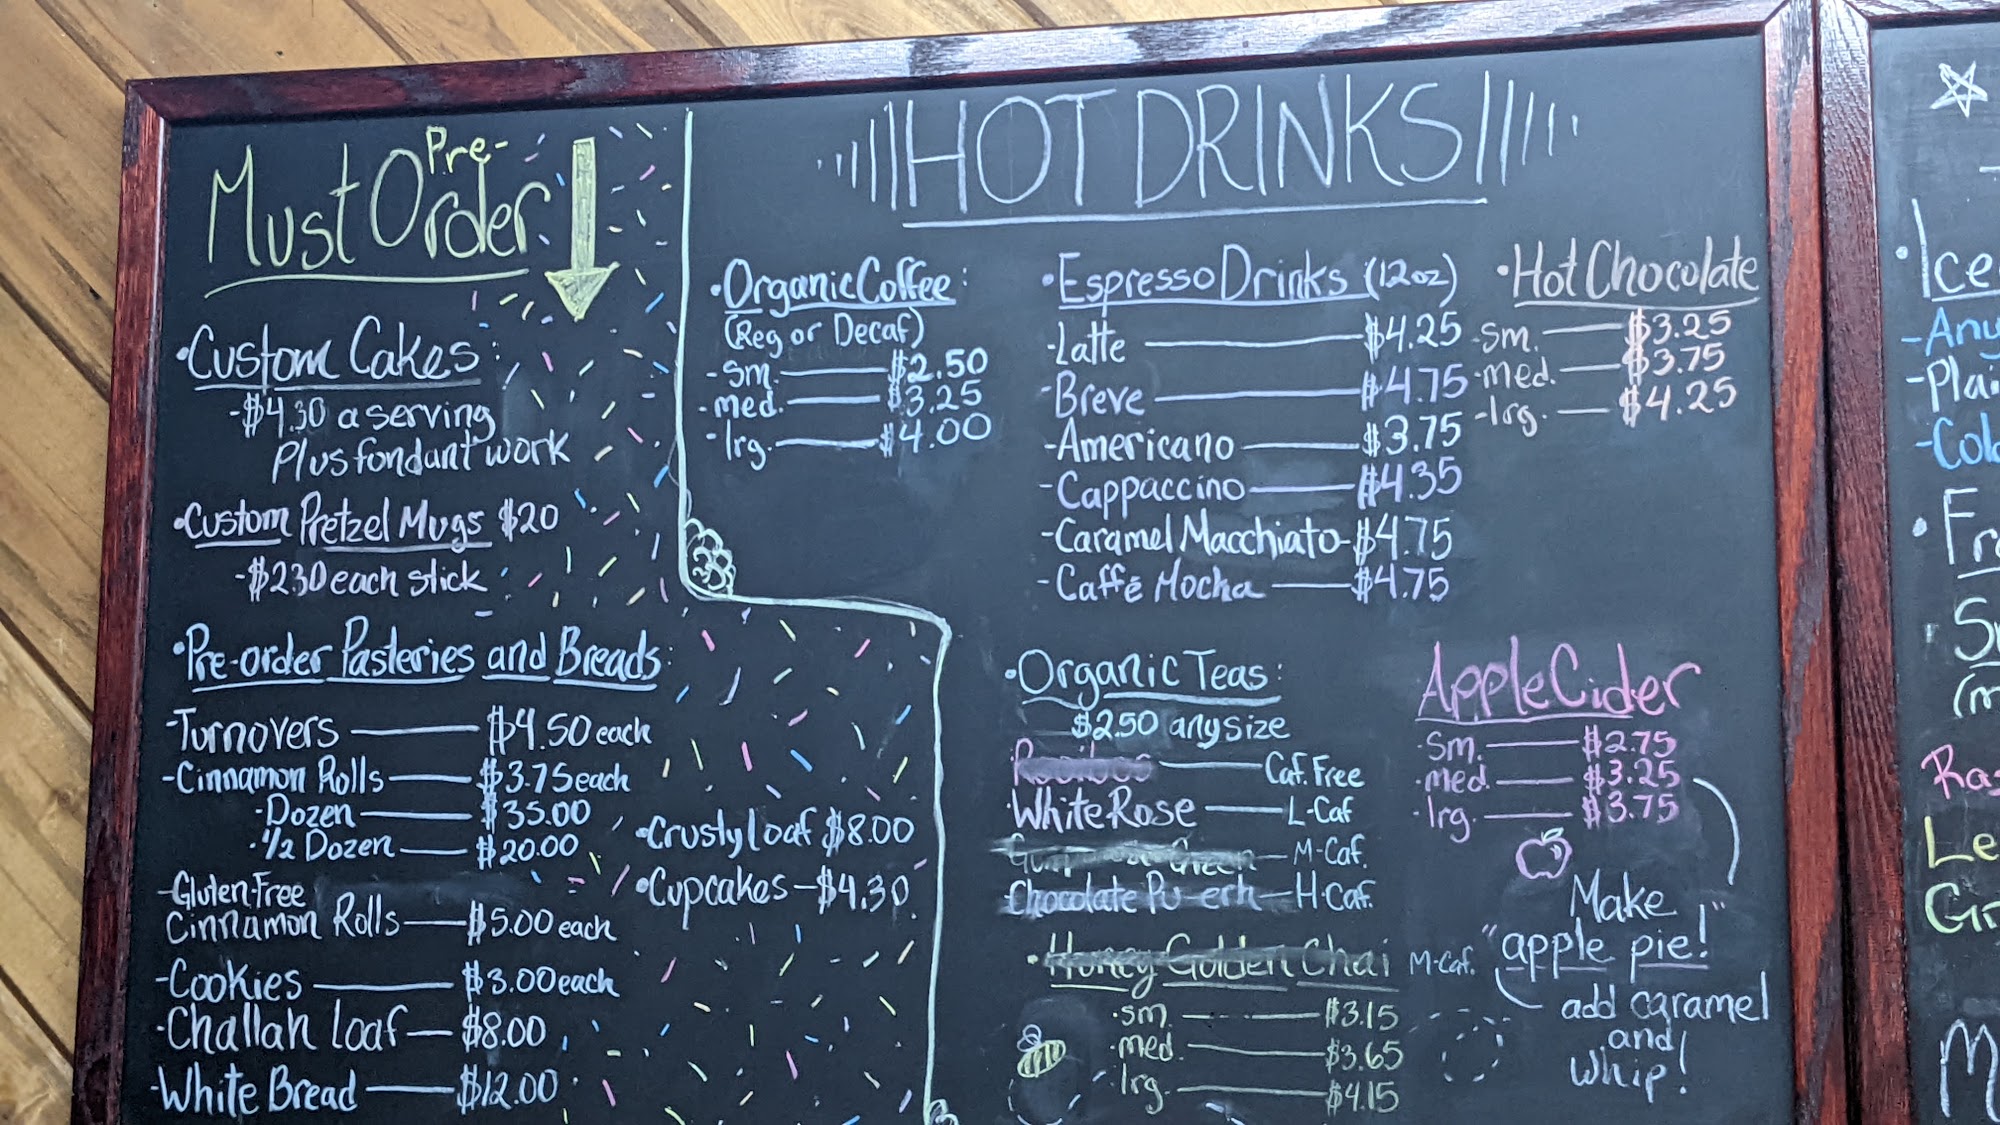 Must Pre-Order
•Custom Cakes:
-$4.30 a serving
Plus fondant work
•Custom Pretzel Mugs $20
-$2.30 each stick
•Pre-order Pasteries and Breads:
-Turnovers — $4.50 each
-Cinnamon Rolls — $3.75 each
•Dozen — $35.00
•½ Dozen — $20.00
-Gluten Free
Cinnamon Rolls — $5.00 each
-Cookies — $3.00 each
-Challah loaf — $8.00
-White Bread — $12.00
•Crusty loaf $8.00
•Cupcakes — $4.30
HOT DRINKS
•Organic Coffee:
(Reg or Decaf)
-sm. — $2.50
-med. — $3.25
-lrg. — $4.00
•Espresso Drinks (12oz)
-Latte — $4.25
-Breve — $4.75
-Americano — $3.75
-Cappaccino — $4.35
-Caramel Macchiato - $4.75
-Caffé Mocha — $4.75
•Hot Chocolate
-sm. — $3.25
-med. — $3.75
-lrg. — $4.25
•Organic Teas:
$2.50 any size
Rooibos — Caf. Free
White Rose — L-Caf
Green — M-Caf.
Chocolate Pu-erh — H-Caf.
•Honey Golden Chai M-Caf.
•sm. — $3.15
•med. — $3.65
lrg. — $4.15
Apple Cider
•sm. — $2.75
•med. — $3.25
•lrg. — $3.75
Make
"apple pie!"
add caramel
and
whip!
•Ice
-Any
-Plai
-Col